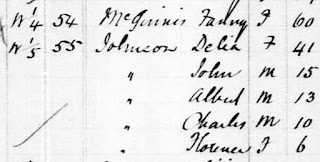 W 1/4 54 McGuinis Fanny F 60
W 1/5 55 Johnson Delia F 41
" John M 15
" Albert M 13
" Charles M 10
" Florence F 6